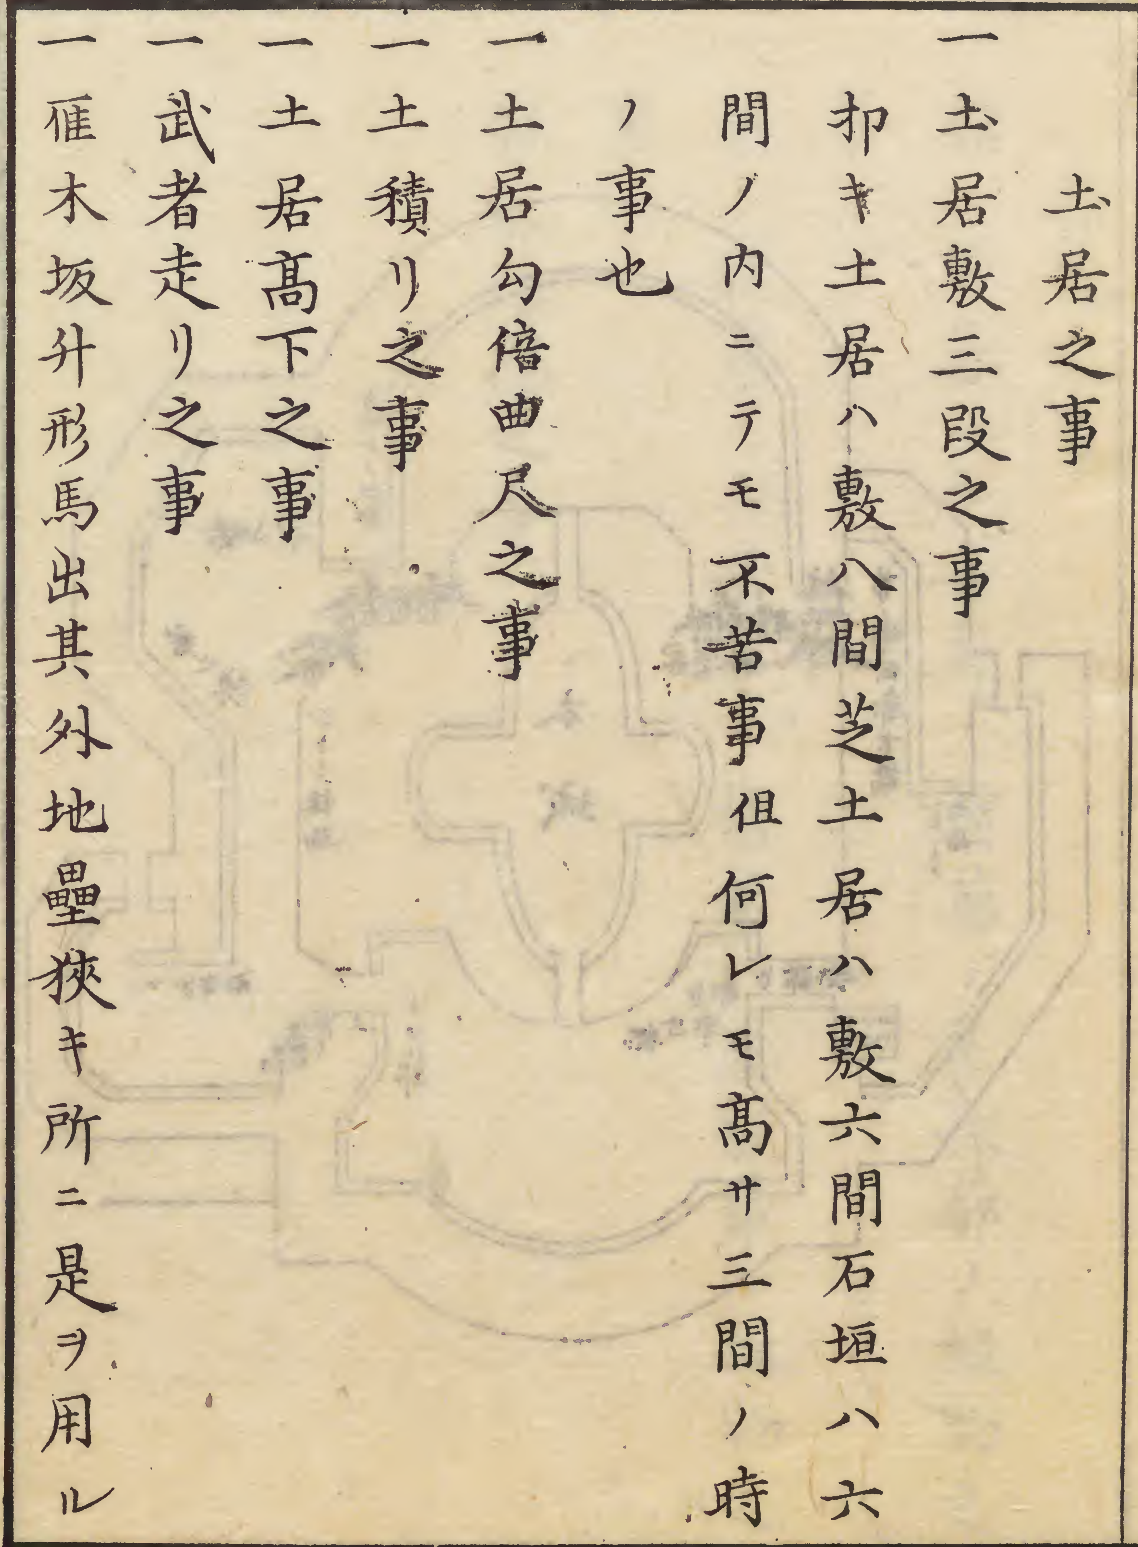 土居之事
一土居敷三段之事
卯キ土居ハ敷八間芝土居ハ敷六間石垣ハ六
間ノ内ニテモ不苦事伹何レモ髙サ三間ノ時
ノ事也
一土居勾倍曲尺之事
一土積リ之事
一土居髙下之事
一武者走リ之事
一雁木坂升形馬出其外地壘狹キ所ニ是ヲ用ル